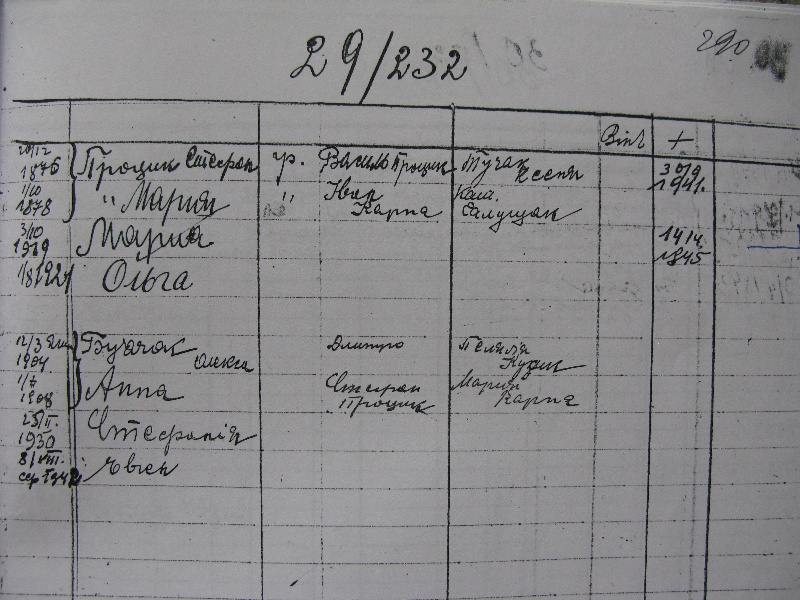 290
29/232
Вінч +
1876 Процик Стефан гр. Василь Процик Тучак Ксеня 30/9 1941.
1/10 1878 " Мария " Іван Карпа Кат. Салущак
3/10 1919 Мария 14/4 1945
1/8 1921 Ольга
12/3 1904 Бучачок Олекса Дмитро Пелагія Кузик
1908 Анна Стефан Процик Марий Карпа
23/II. 1930 Стефанія
8/VIII. Явген